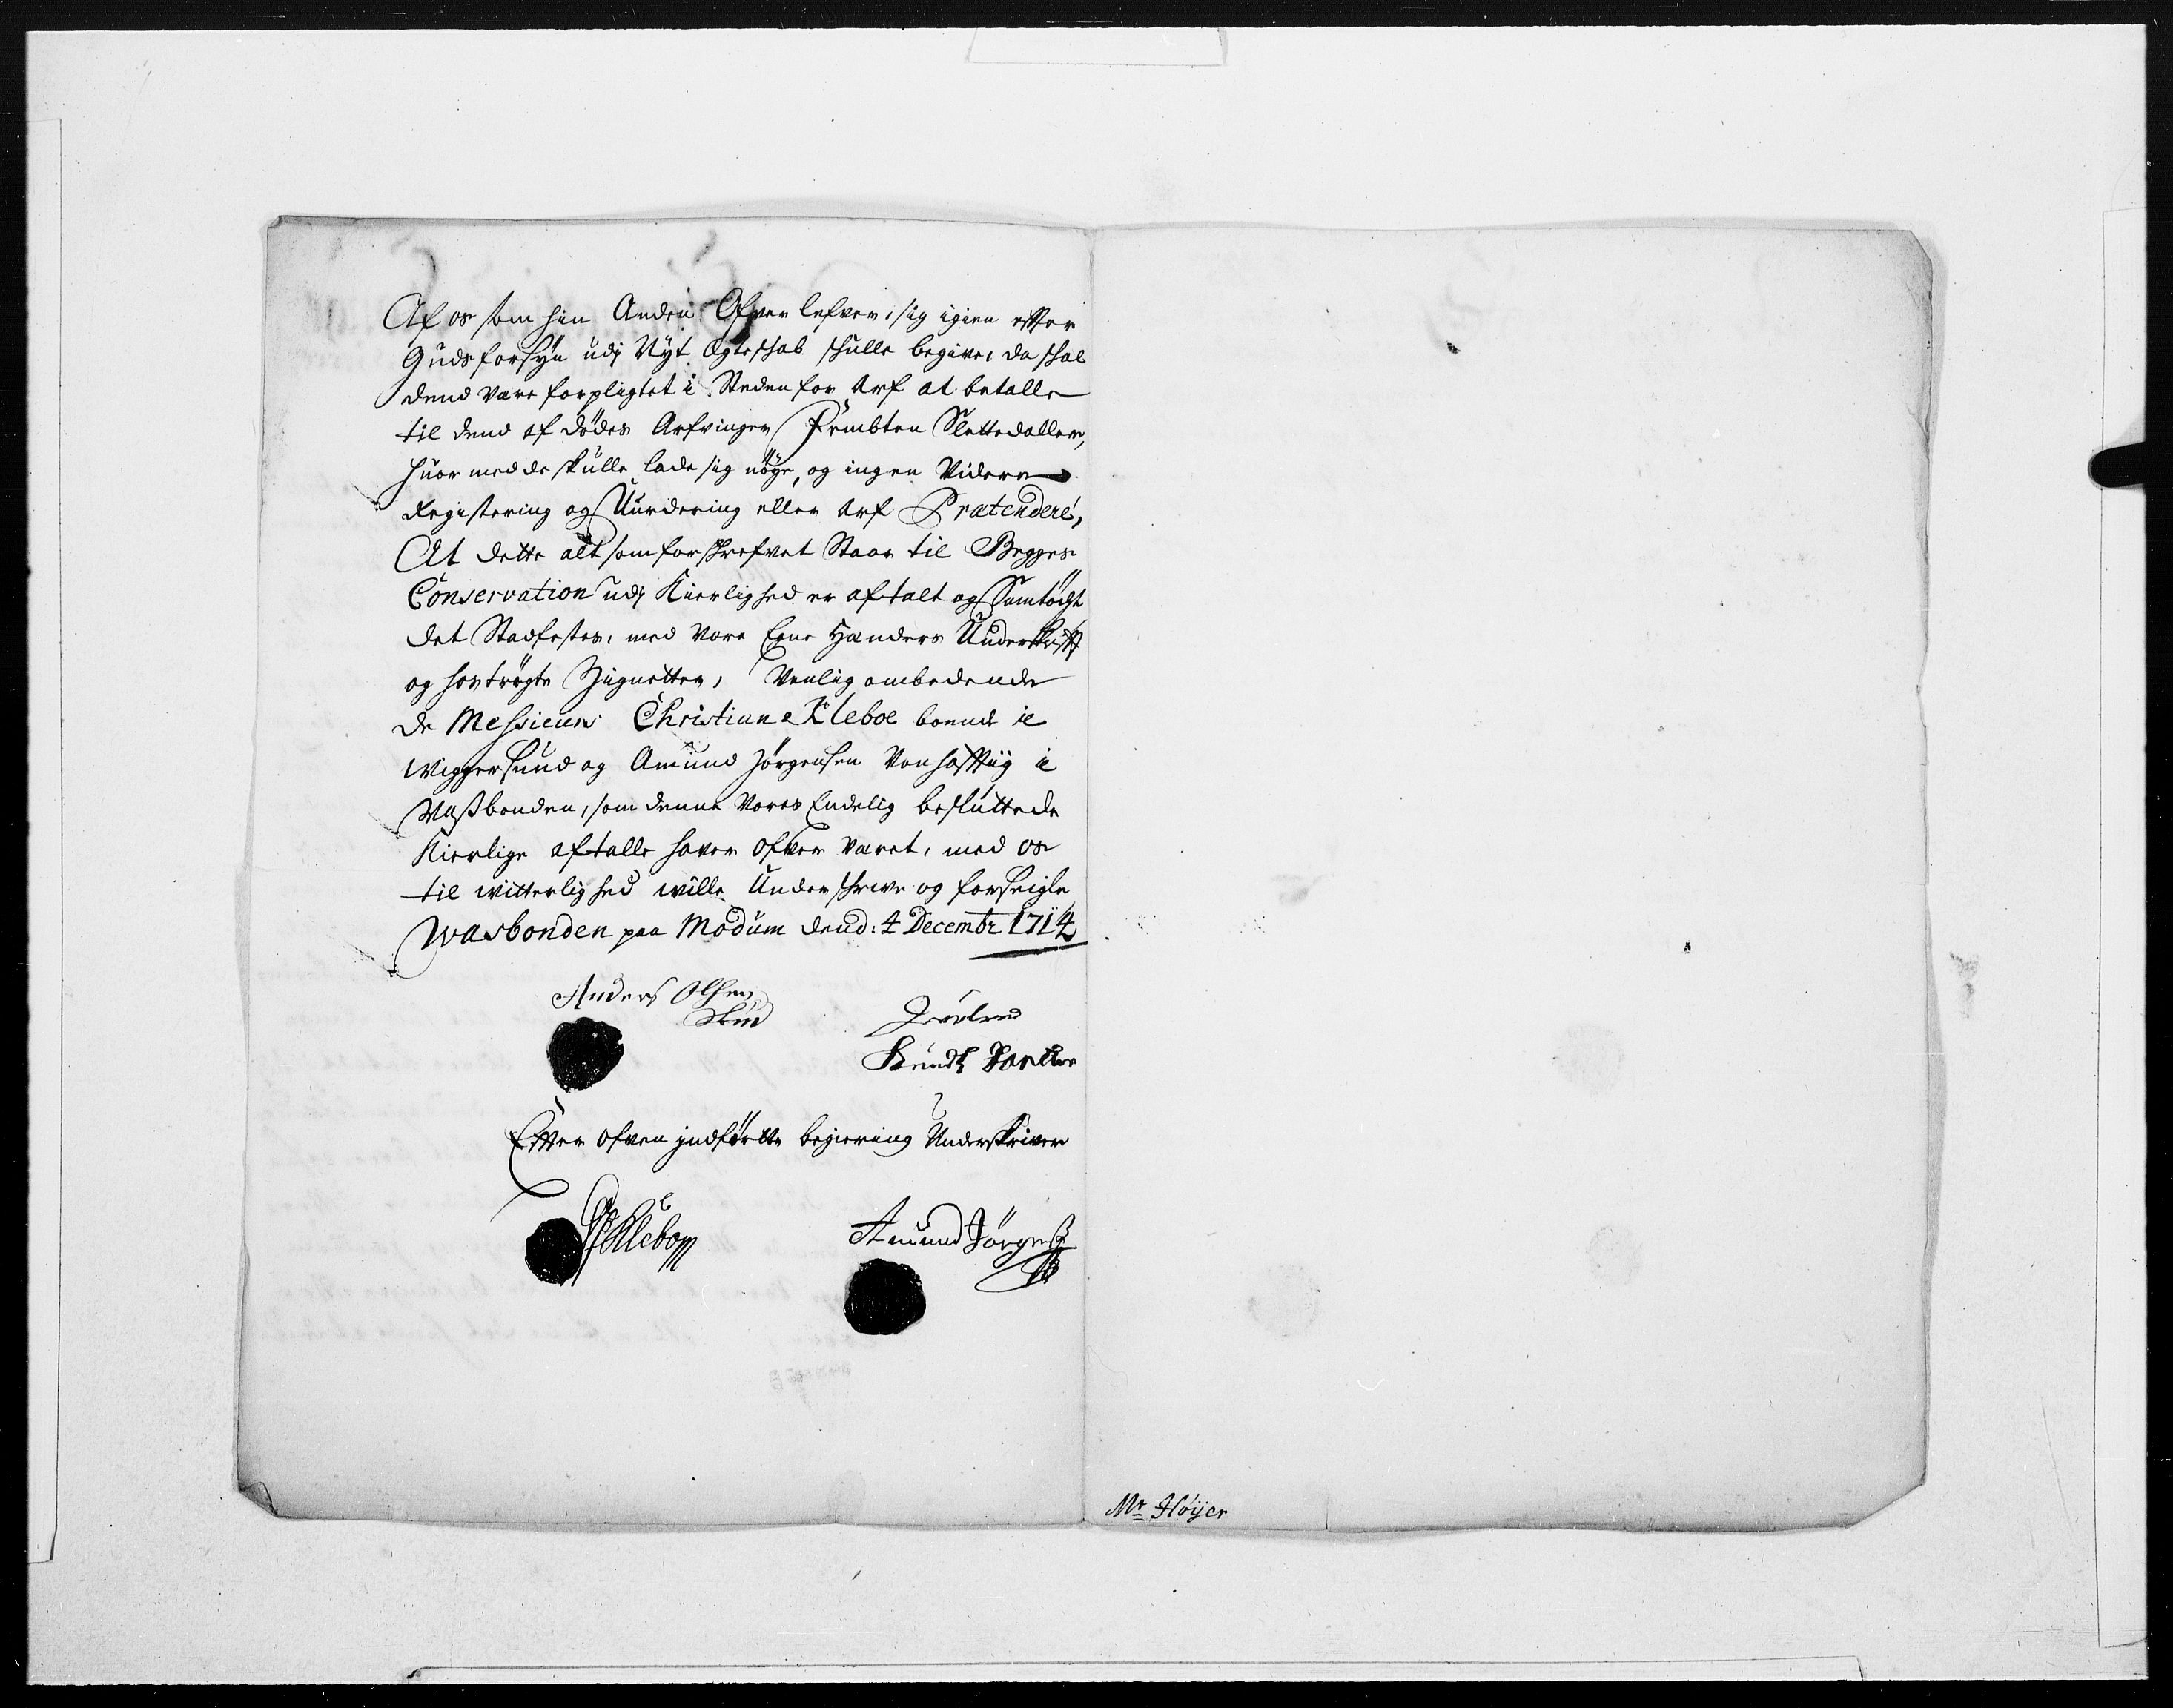 Af os som hin Anden Ofverlefver, sig igien effter
Guds forsÿn udj Nÿt Ægteschab schulle begive, da schal
dend være forpligtet i Steden for Arf at betalle
til dend af dødes Arfvinger Fembten Slettedaller,
huormed de skulle lade sig nøÿe, og ingen Videre
Registering og Vurdering eller Arf Prætendere,
At dette alt som forschrefvet Staar til Begges
Conservation udj Kierlighed er aftalt og Samtÿcht
det Stadfestes, med vore Egne Hænders Underskrifft
og hostrÿgte Zignetter, Venlig ombedende
de Messieurs Christian Kleboe boende i
Wiggersund og Amund Jørgensen Vonhafftig i
Wassbonden, som denne vores Endelig besluttede
Kierlige aftalle haver ofver været, med os
til witterlighed wille Underschrive og forseigle
Wasbonden paa Modum dend: 4 Decembr 1714
Anders Olsen
Knudt
Effter ofven jndførte begiering Underskriver
Kleboe
Amund Jørgens
Mr Høÿer